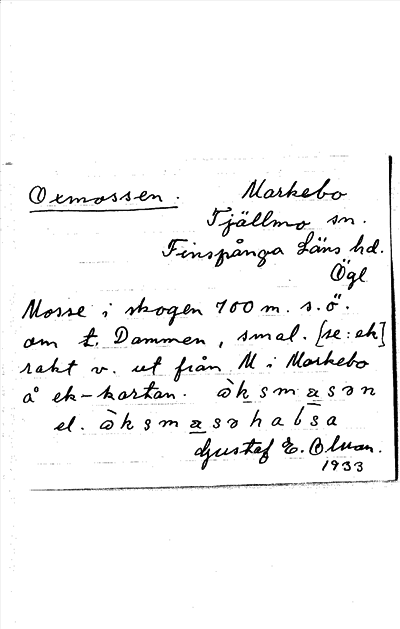 Oxmossen. Markebo
Tjällmo sn.
Finspånga Läns hd.
Ögl
Mosse i skogen 700 m. s.ö.
om t. Dammen, smal. [se: ek]
rakt v. ut från M i Markebo
å ek-kartan.
el.
Gustaf E. Olsson.
1933